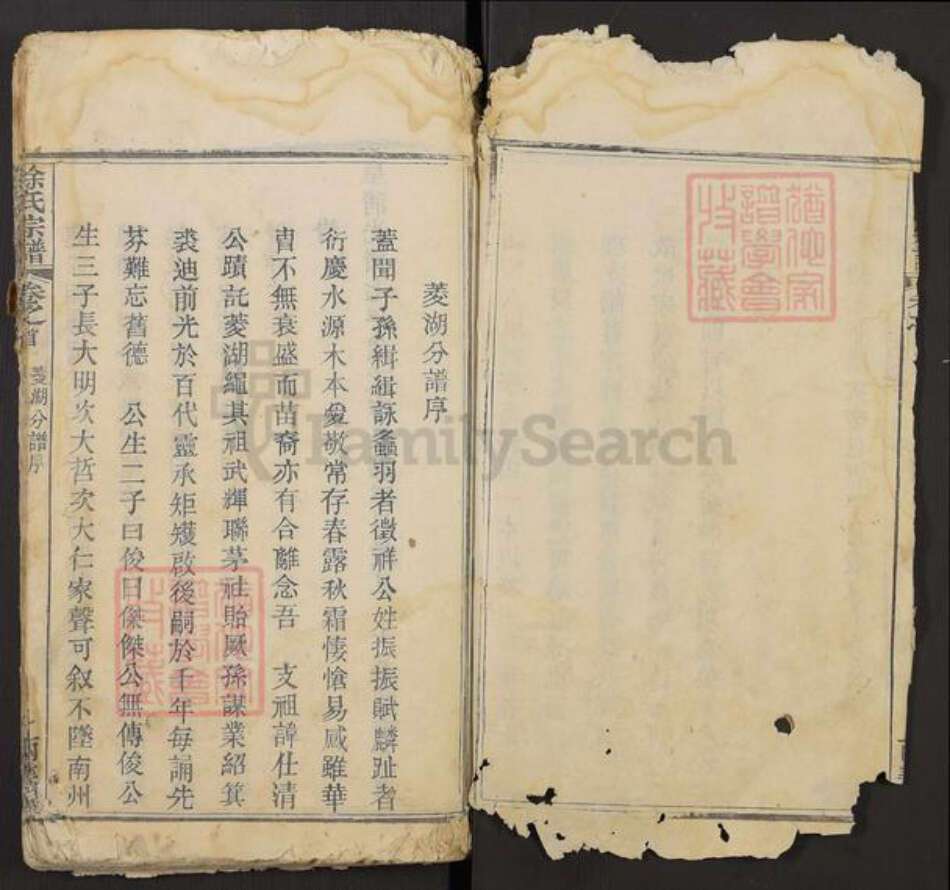 菱湖分譜序
蓋聞子孫緝緝詠螽羽者徵祥公姓振振賦麟趾者
衍慶水源木本愛敬常存春露秋霜悽愴易感雖華
胄不無衰盛而苗裔亦有合離念吾 支祖諱仕清
公蹟託菱湖繩其祖武輝聯茅社貽厥孫謀業紹箕
裘迪前光於百代靈承矩矱啟後嗣於千年每誦先
芬難忘舊德 公生二子曰俊曰傑傑公無傳俊公
生三子長大明次大哲次大仁家聲可叙不墜南州
徐氏宗譜
卷之首
菱湖分譜序
譜學會
收藏
FamilySearch